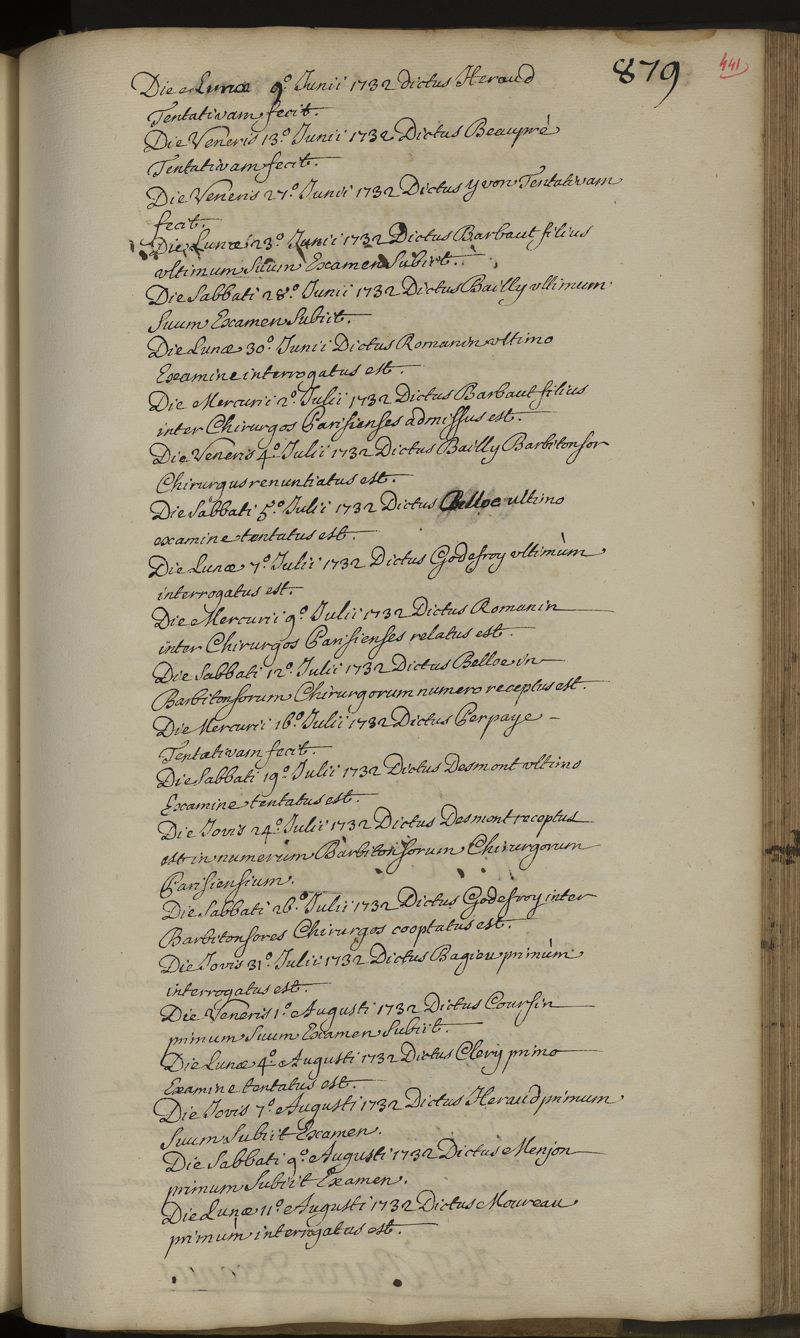 879
441
Die Lunæ 9.º Junii 1732 dictus Heraud
Tentativam fecit.
Die Veneris 13.º Junii 1732 Dictus Beaupré
Tentativam fecit.
Die Veneris 27.º Junii 1732 Dictus yvon Tentativam
fecit.
Die Lunæ 23.º Junii 1732 Dictus Barbaut filius
vltimum suum Examen Subiit.
Die Sabbati 28.º Junii 1732 Dictus Bailly vltimum
Suum Examen Subiit.
Die Lunæ 30.º Junii Dictus Romanin vltimo
Examine interrogatus est.
Die Mercurii 2.º Julii 1732 Dictus Barbaut filius
inter Chirurgos Parisienses admissus est.
Die Veneris 4.º Julii 1732 Dictus Bailly Barbitonsor
Chirurgus renuntiatus est.
Die Sabbati 5.º Julii 1732 Dictus Belloc ultimo
examine tentatus est.
Die Lunæ 7.º Julii 1732 Dictus Godefroy vltimùm
interrogatus est.
Die Mercurii 9.º Julii 1732 Dictus Romanin
inter Chirurgos Parisienses relatus est.
Die Sabbati 12.º Julii 1732 Dictus Belloc in
Barbitonsorum Chirurgorum numero receptus est.
Die Mercurii 16.º Julii 1732 Dictus Perpaye
Tentativam fecit.
Die Sabbati 19.º Julii 1732 Dictus Desmont vltimo
Examine tentatus est.
Die Jovis 24.º Julii 1732 Dictus Desmont receptus
est in numerum Barbitonsorum Chirurgorum
Parisiensium.
Die Sabbati 26.º Julii 1732 Dictus Godefroy inter
Barbitonsores Chirurgos cooptatus est.
Die Jovis 31.º Julii 1732 Dictus Bagieu primùm
interrogatus est.
Die Veneris 1.º Augusti 1732 Dictus Coursin
primum suum Examen Subiit.
Die Lunæ 4.º Augusti 1732 Dictus Clery primo
Examine tentatus est.
Die Jovis 7.º Augusti 1732 Dictus Heraud primum
Suum Subiit Examen.
Die Sabbati 9.º Augusti 1732 Dictus Menjon
primum Subiit Examen.
Die Lunæ 11.º Augusti 1732 Dictus Moureau
primùm interrogatus est.